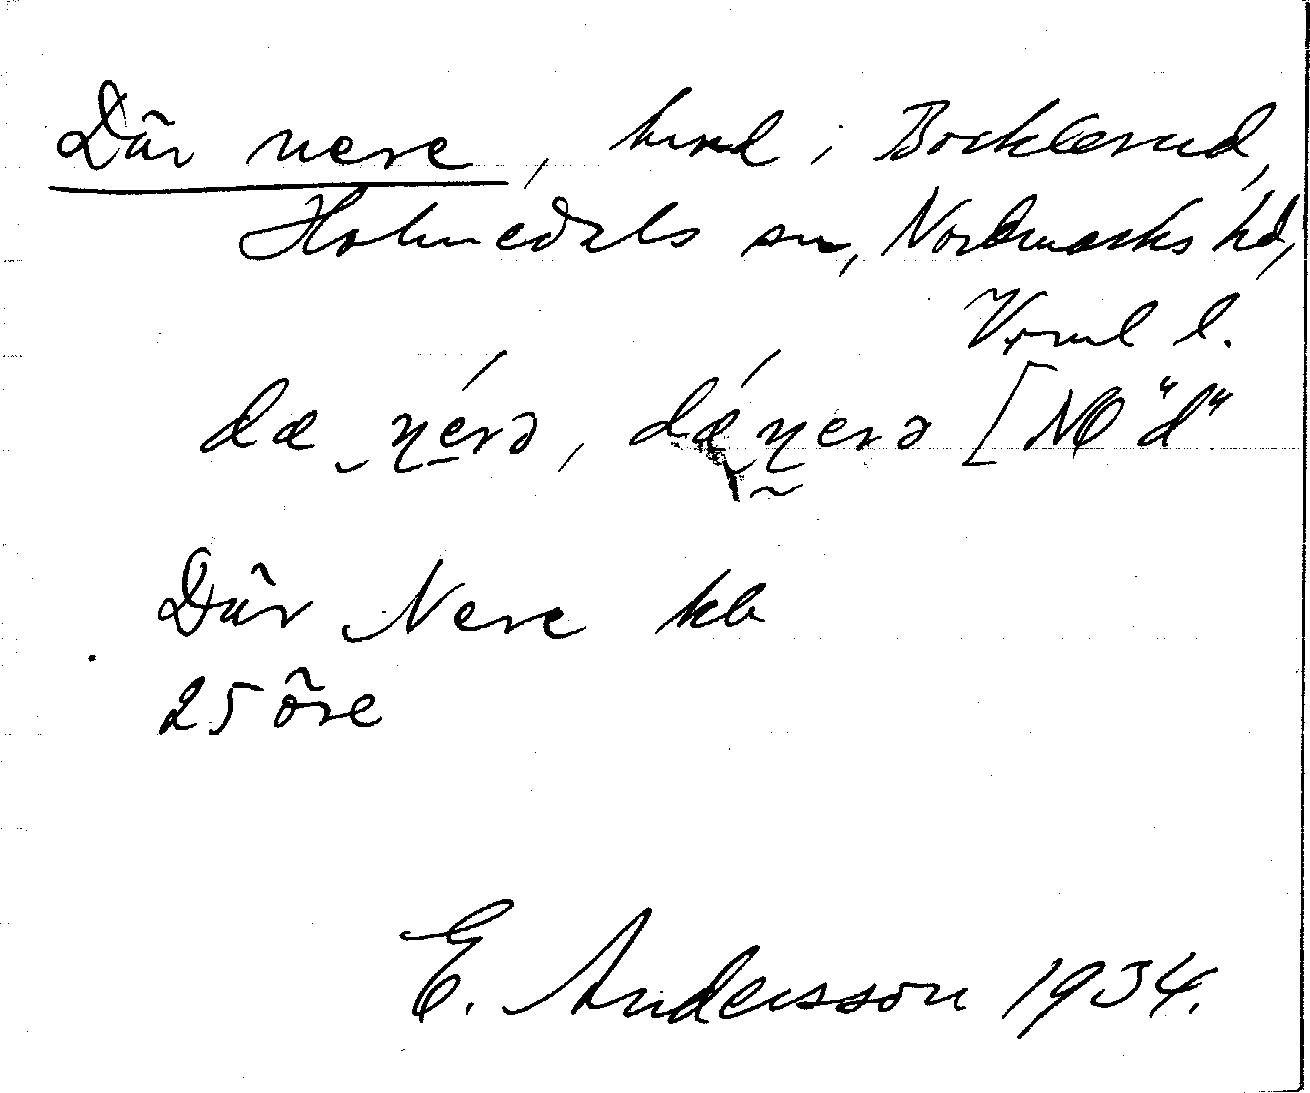 Där nere, hmd i Bocklerud,
Holmedals sn, Nordmarks hd,
Vrml l.
dæ ɳérə, dǽ ɳerə [NO "d"
Där Nere kb
25 öre
E. Andersson 1934.